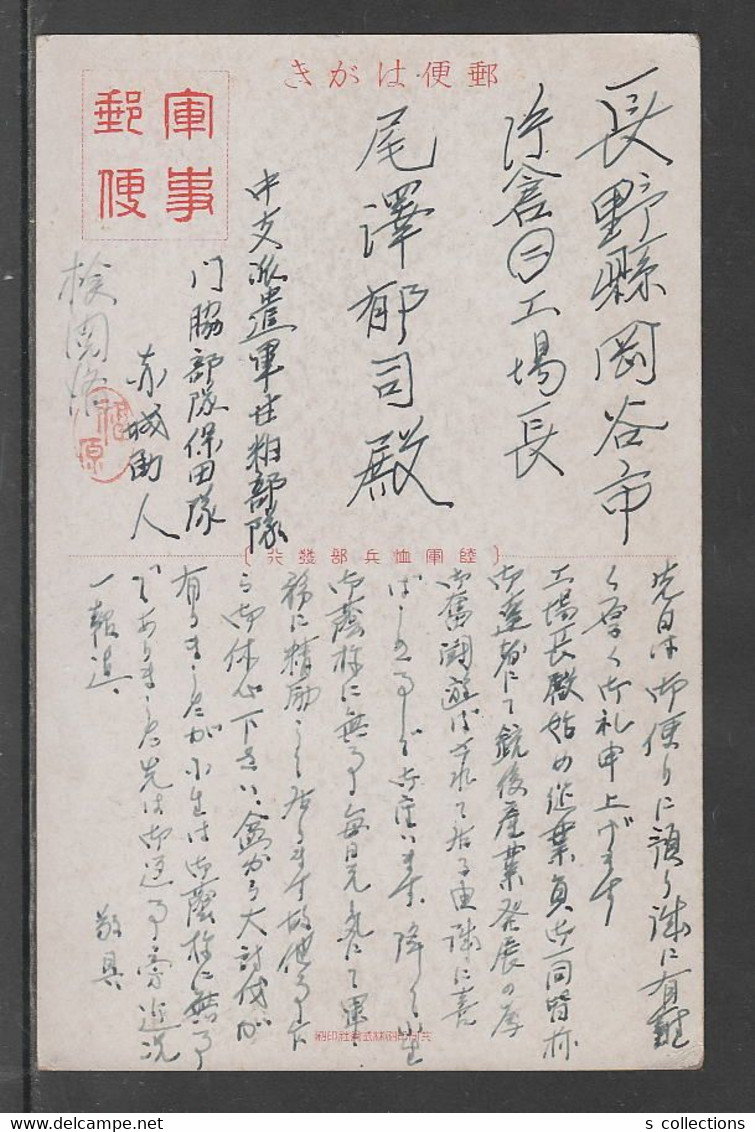 郵便はがき
軍事
郵便
長野縣岡谷市
片倉㊁工場長
尾澤郁司殿
中支派遣軍甘粕部隊
門脇部隊保田隊
赤城
検閲済
原
〔陸軍恤兵部發行〕
先日は御便りに預り誠に有難
く厚く御礼申上げます
工場長殿始め従業員御一同皆称
御達者にて銃後産業発展の為
御奮闘遊ばされて居る由誠に喜
ばしの事で御座います、降て小生
御蔭様に無事毎日元気にて軍
務に精励して居ります故他事な
ら御休心下さい、盆から大討伐が
有りましたが小生は御蔭様に無事
でありました先は御返事旁近況
一報迄、
敬具
s collections